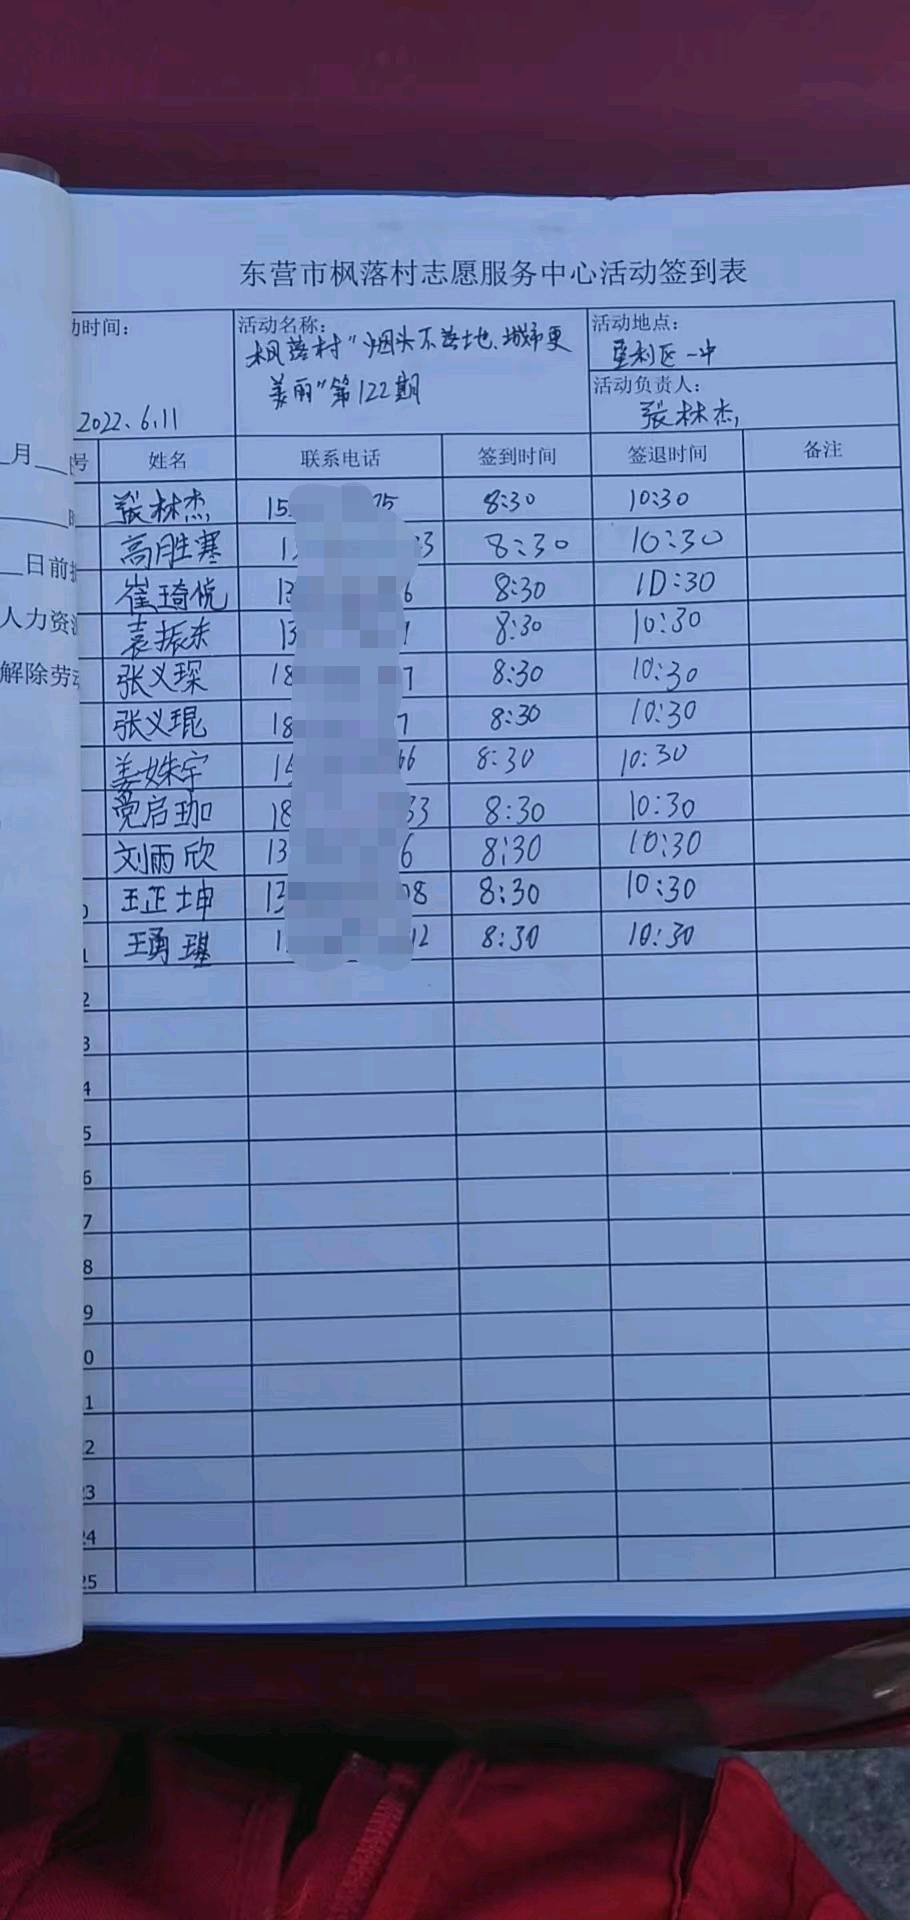 东营市枫落村志愿服务中心活动签到表
动时间：
2022.6.11
活动名称：
枫落村"烟头不落地、城市更
美丽"第122期
活动地点：
垦利区一中
活动负责人：
张林杰
号 姓名 联系电话 签到时间 签退时间 备注
张林杰 15 75 8:30 10:30
高胜寒 1 3 8:30 10:30
崔琦悦 13 6 8:30 10:30
袁振东 13 8:30 10:30
张义琛 18 7 8:30 10:30
张义琨 18 7 8:30 10:30
姜姝宇 1 66 8:30 10:30
党启珈 18 33 8:30 10:30
刘雨欣 13 6 8:30 10:30
0 王正坤 13 08 8:30 10:30
1 王勇琪 1 12 8:30 10:30
2
3
4
5
6
7
8
9
0
1
2
23
24
25
月
日前
人力资
解除劳动